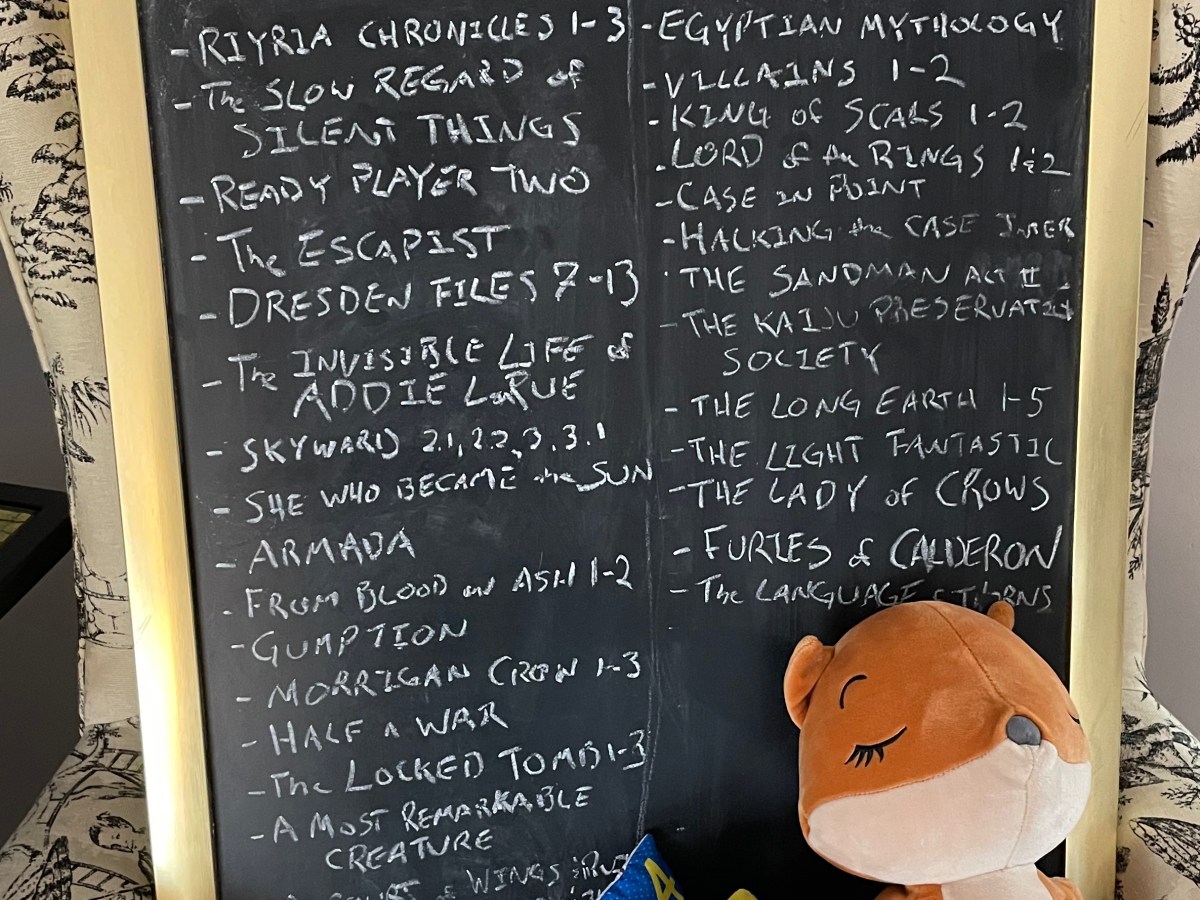 - RIYRIA CHRONICLES 1-3
- The SLOW REGARD of
SILENT THINGS
- READY PLAYER TWO
- The ESCAPIST
- DRESDEN FILES 7-13
- The INVISIBLE LIFE of
ADDIE LaRUE
- SKYWARD 2.1, 2.2, 3, 3.1
- SHE WHO BECAME the SUN
- ARMADA
- FROM BLOOD and ASH 1-2
- GUMPTION
- MORRIGAN CROW 1-3
- HALF A WAR
- The LOCKED TOMB 1-3
- A MOST REMARKABLE
CREATURE
WINGS
- EGYPTIAN MYTHOLOGY
- VILLAINS 1-2
- KING of SCARS 1-2
- LORD of the RINGS 1&2
- CASE IN POINT
- HACKING the CASE INTER
- THE SANDMAN ACT II
- THE KAIJU PRESERVATION
SOCIETY
- THE LONG EARTH 1-5
- THE LIGHT FANTASTIC
- THE LADY of CROWS
- FURIES of CALDERON
- The LANGUAGE of THORNS